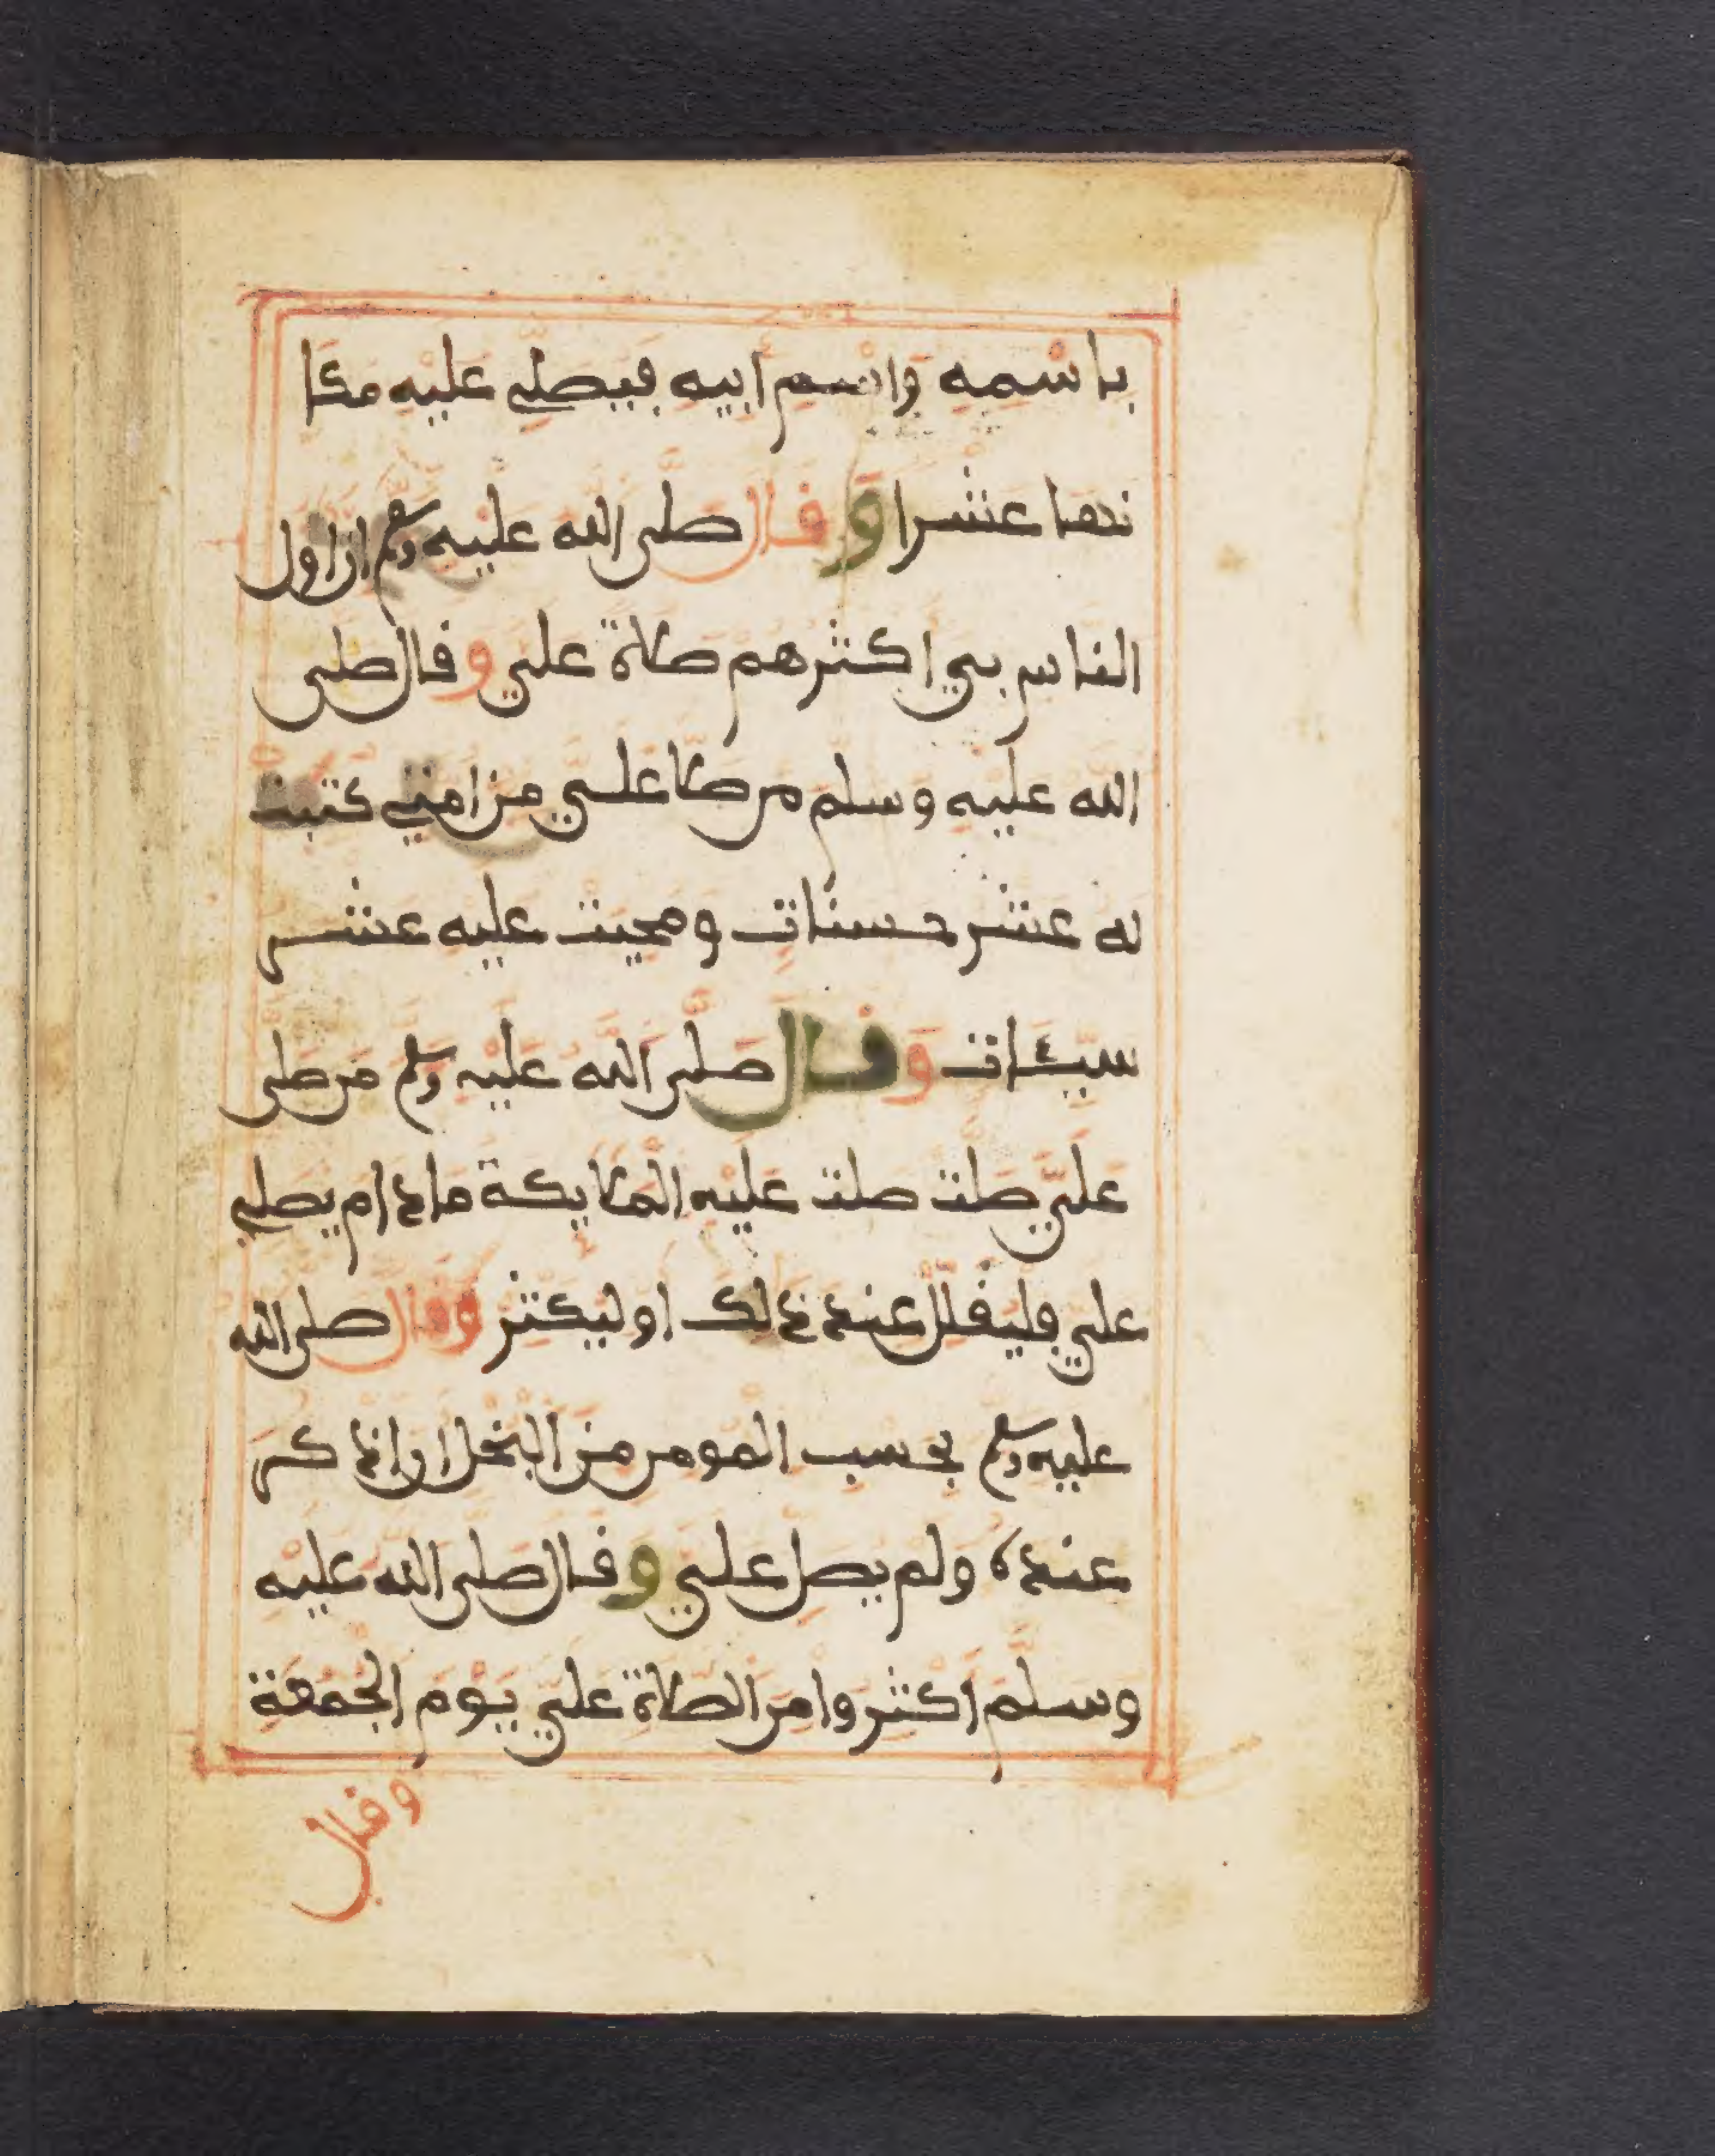 باسمه واسم ابيه فيصلي عليه مكا
نها عشرا وقال صلى الله عليه وسلم ان اول
الناس بي اكثرهم صلاة علي وقال صلى
الله عليه وسلم من صلا علي من امتي كتبت
له عشر حسنات ومحيت عليه عشر
سيئات وقال صلى الله عليه وسلم من صلى
علي صلت صلت عليه الملايكة ما دام يصلي
علي فليقلل عند ذلك او ليكثر وقال صلى الله
عليه وسلم بحسب المومن من البخل ان اذكر
عنده ولم يصل علي وقال صلى الله عليه
وسلم اكثروا من الصلاة علي يوم الجمعة
وقال